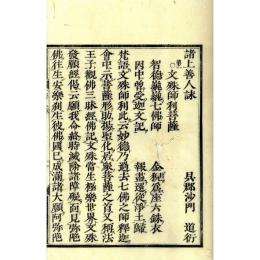 諸上善人詠
吳郡沙門 道衍
文殊師利菩薩
智德巍巍七佛師 金
因中曾受迦文記 報盡還從淨土歸
梵語文殊師利此云妙德乃過去七佛之師釋迦
會中示菩薩形助揚聖化居眾菩薩之首又稱法
王子觀佛三昧經佛記文殊當生極樂世界文殊
發願經偈云願我命終時滅除諸障礙面見彌陀
佛往生安樂剎生彼佛國已成滿諸大願阿彌陀